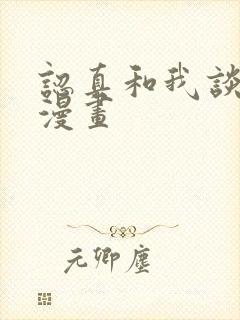 認真和我談
漫畫
元卿塵